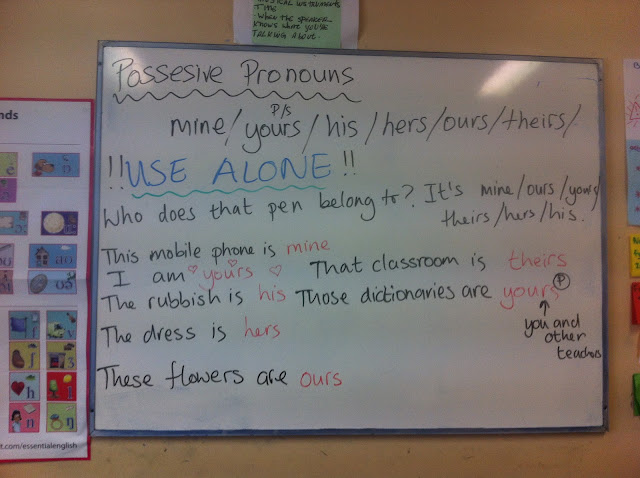 MUSICAL INSTRUMENTS
TYPE
- WHEN THE SPEAKER
KNOWS WHAT YOU'RE
TALKING ABOUT.
Possesive Pronouns
P/S
mine/yours/his/hers/ours/theirs/
!!USE ALONE!!
Who does that pen belong to? It's mine/ours/yours/
theirs/hers/his.
This mobile phone is mine
I am yours That classroom is theirs
The rubbish is his Those dictionaries are yours P
The dress is hers
you and
other
teachers
These flowers are ours
nds
t.com/essentialenglish